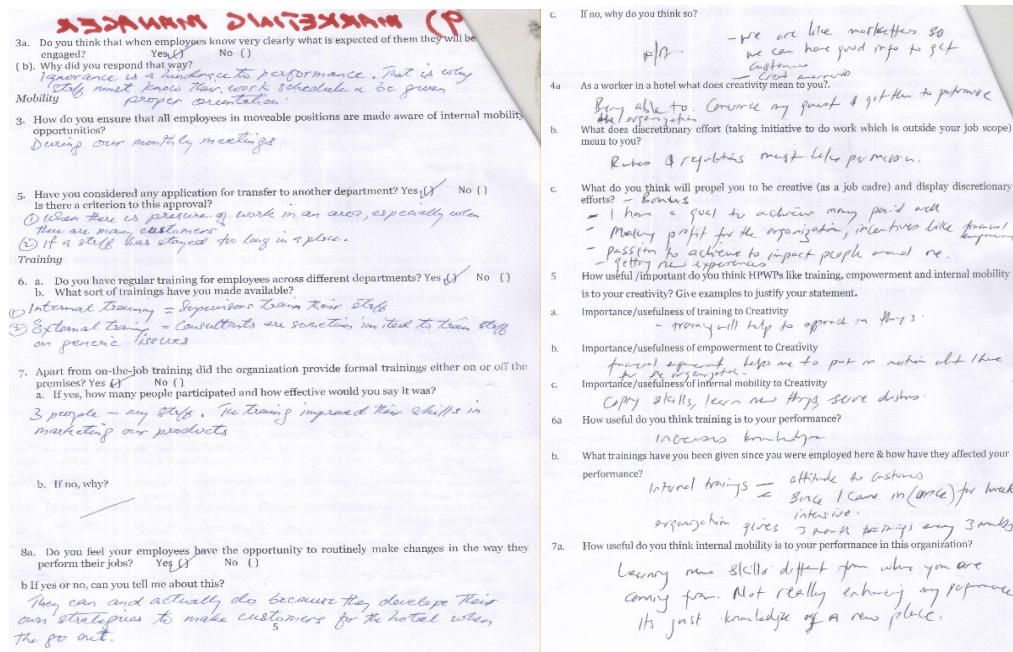 9) MARKETING MANAGER
3a. Do you think that when employees know very clearly what is expected of them they will be
engaged? Yes () No ()
( b). Why did you respond that way?
Ignorance is a hindrance to performance. That is why
staff must know their work schedule & be given
proper orientation.
Mobility
3. How do you ensure that all employees in moveable positions are made aware of internal mobility
opportunities?
During our monthly meetings
5. Have you considered any application for transfer to another department? Yes () No ()
Is there a criterion to this approval?
① When there is pressure of work in an area, especially when
there are many customers
② If a staff has stayed too long in a place.
Training
6. a. Do you have regular training for employees across different departments? Yes () No ()
b. What sort of trainings have you made available?
① Internal training = Supervisors train their staff
② External training - Consultants are sometimes invited to train staff
on generic issues
7. Apart from on-the-job training did the organization provide formal trainings either on or off the
premises? Yes () No ()
a. If yes, how many people participated and how effective would you say it was?
3 people - my staff. The training improved their skills in
marketing our products
b. If no, why?
8a. Do you feel your employees have the opportunity to routinely make changes in the way they
perform their jobs? Yes () No ()
b If yes or no, can you tell me about this?
They can and actually do because they develope their
own strategies to make customers for the hotel when
the go out.
5
c. If no, why do you think so?
N/A - we are like marketers so
we can have good info to get
customers
4a As a worker in a hotel what does creativity mean to you?.
Being able to convince my guest & get them to patronise
the organization
b. What does discretionary effort (taking initiative to do work which is outside your job scope)
mean to you?
Rules & regulations must take permission.
c. What do you think will propel you to be creative (as a job cadre) and display discretionary
efforts? - Bonus
- I have a goal to achieve many paid well
- Making profit for the organization, incentives like financial
- passion to achieve to impact people around me.
- getting new experiences
5 How useful /important do you think HPWPs like training, empowerment and internal mobility
is to your creativity? Give examples to justify your statement.
a. Importance/usefulness of training to Creativity
- training will help to in things.
b. Importance/usefulness of empowerment to Creativity
financial helps me to put in motion what I have
for the organization.
c. Importance/usefulness of internal mobility to Creativity
Copy skills, learn new things, serve
6a How useful do you think training is to your performance?
Increases knowledge
b. What trainings have you been given since you were employed here & how have they affected your
performance?
Internal trainings - attitude to customers
- Since I came in (once) for 1 week
intensive.
organization gives 3 month trainings every 3 months
7a. How useful do you think internal mobility is to your performance in this organization?
Learning new skills different from where you are
coming from. Not really enhancing my performance
Its just knowledge of a new place.